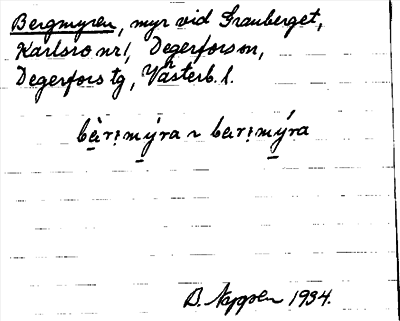 Bergmyren, myr vid Granberget,
Karlsro nr 1, Degerfors sn,
Degerfors tg, Västerb. l.
bèrᶎmýra ~ berᶎmýra
B. 1934.